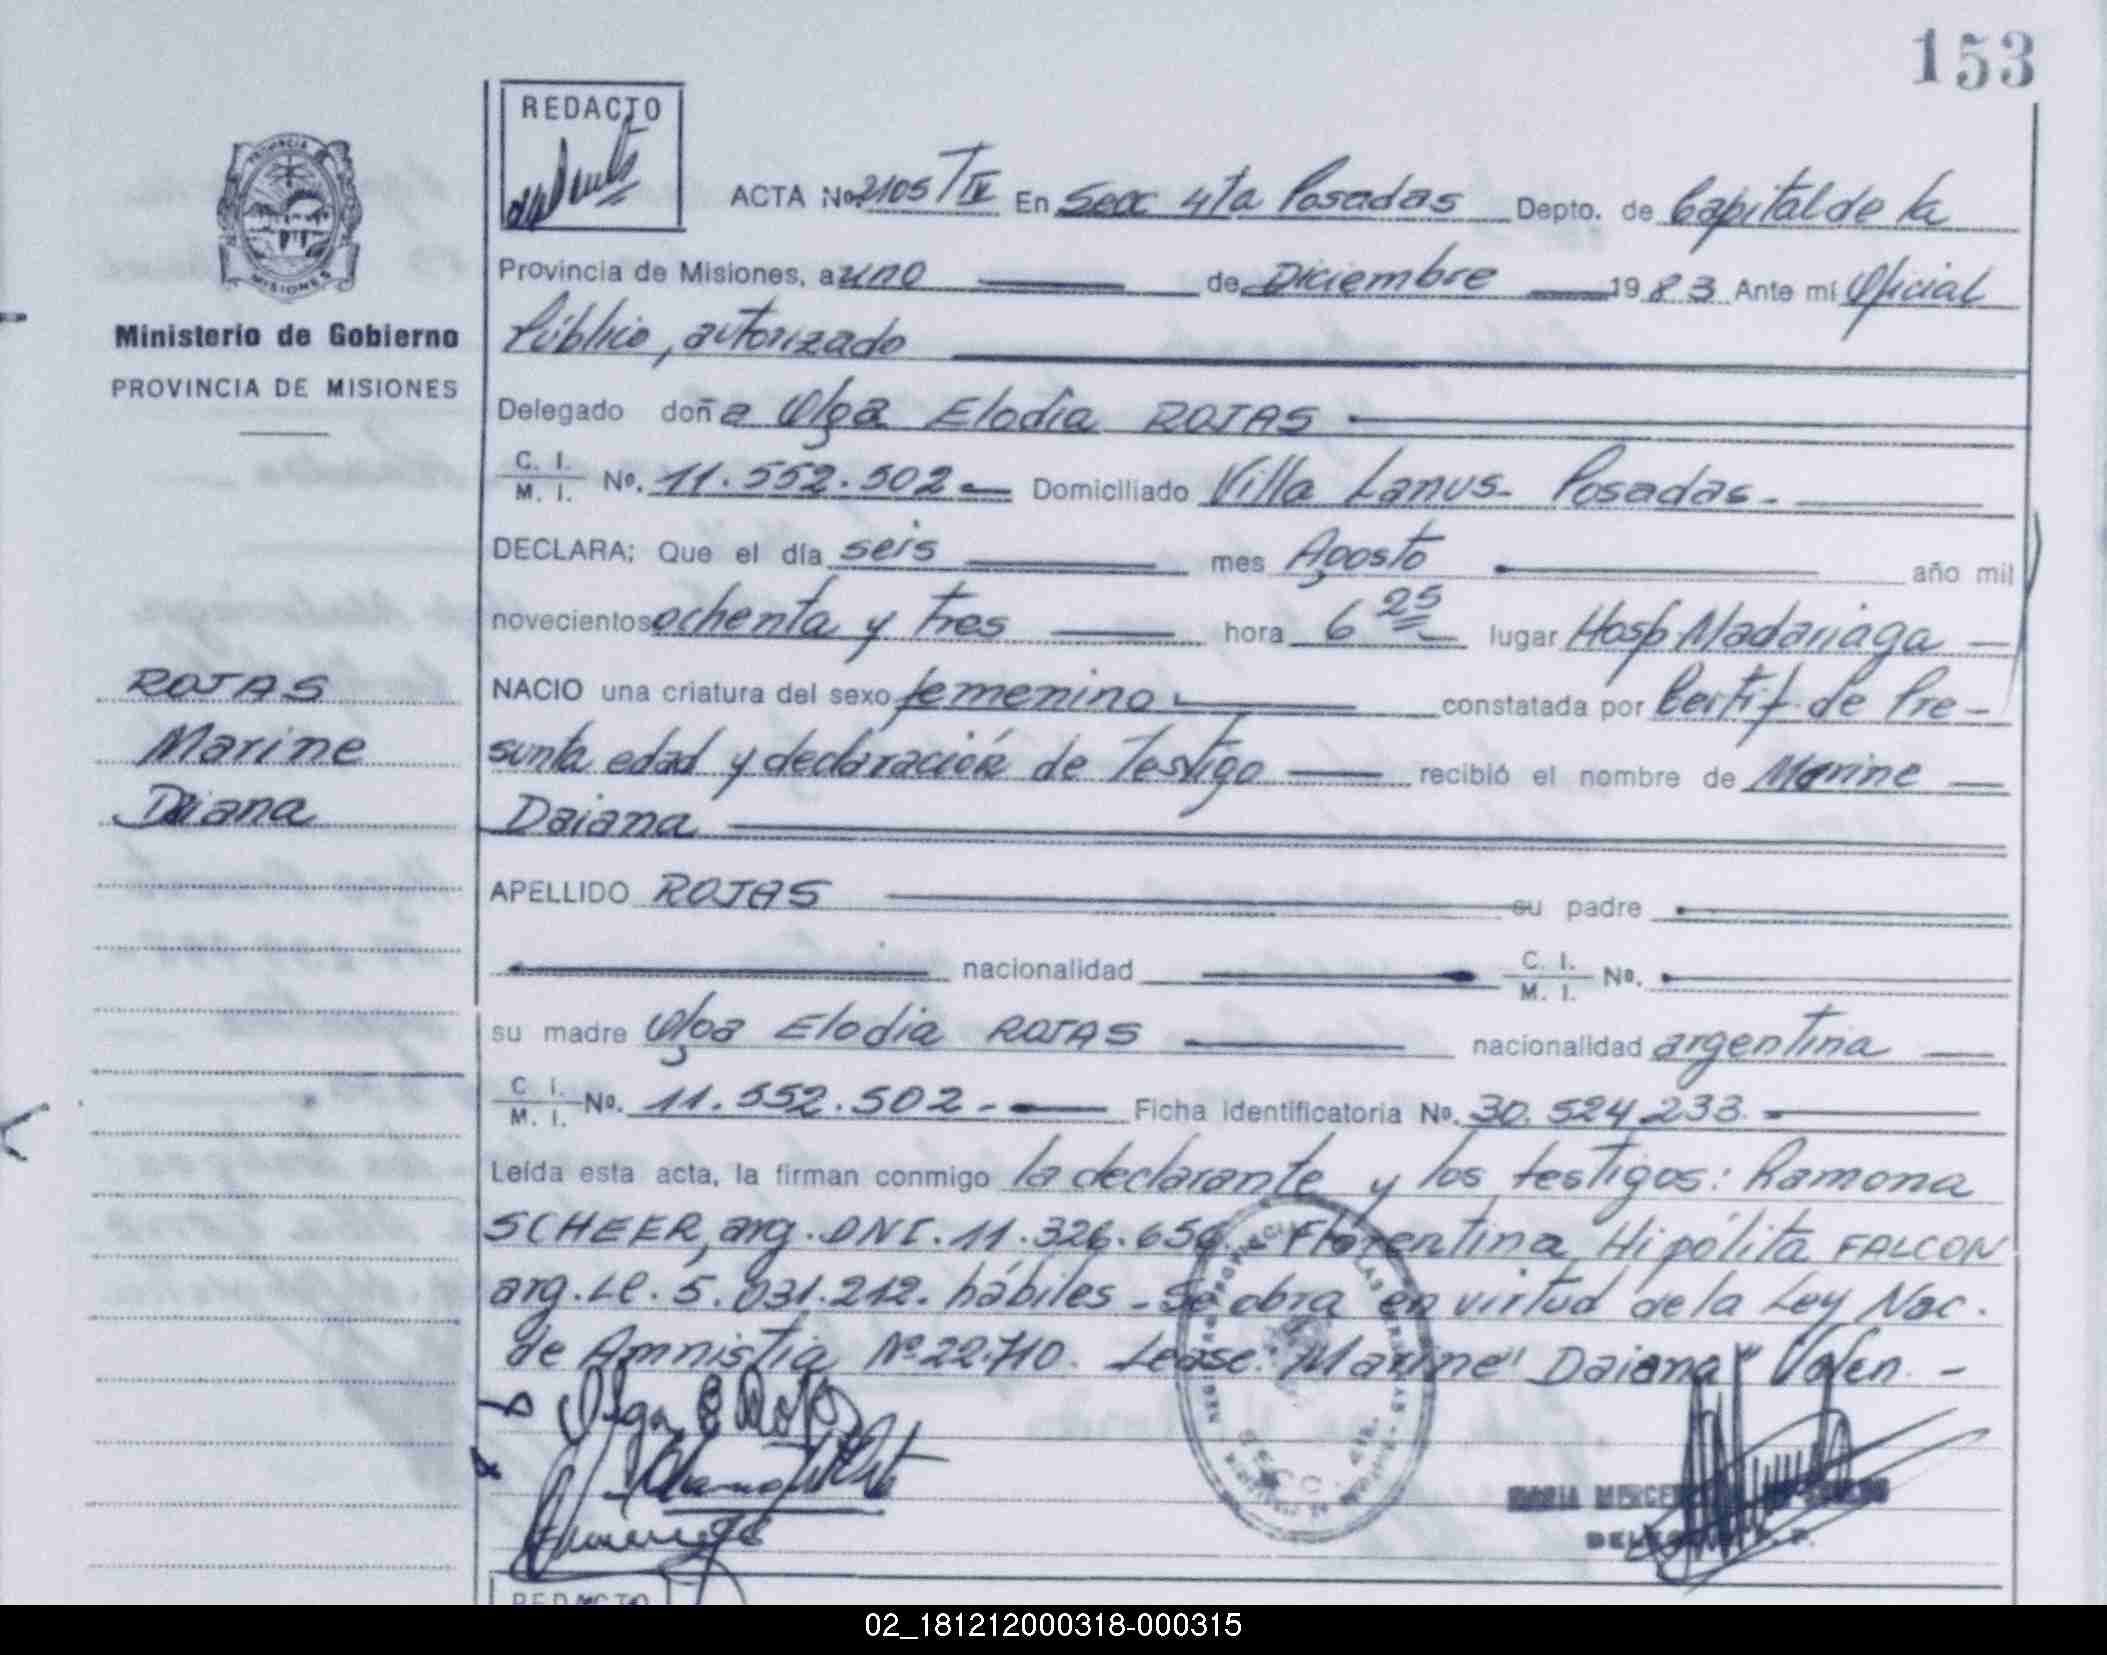 153
REDACTO
PROVINCIA
MISIONES
Ministerio de Gobierno
PROVINCIA DE MISIONES
ACTA No. 2105 T IV En Secc 4ta Posadas Depto. de Capital de la
Provincia de Misiones, a uno de Diciembre 1983 Ante mí Oficial
Público, autorizado
Delegado doña Olga Elodia ROJAS
C. I.
M. I. Nº. 11.552.502 Domiciliado Villa Lanus - Posadas -
DECLARA: Que el día seis mes Agosto año mil
novecientos ochenta y tres hora 6 25 lugar Hosp Madariaga
NACIO una criatura del sexo femenino constatada por Certif. de Pre-
sunta edad y declaración de Testigo recibió el nombre de Marine
Daiana
ROJAS
Marine
Daiana
APELLIDO ROJAS su padre
nacionalidad C. I.
M. I. Nº.
su madre Olga Elodia ROJAS nacionalidad argentina
C. I.
M. I. Nº. 11.552.502 - Ficha identificatoria Nº. 30.524.233.
Leída esta acta, la firman conmigo la declarante y los testigos: Ramona
SCHEER, arg. DNI. 11.326.656 - Florentina Hipólita FALCON
arg. LC. 5.031.212. hábiles - Se obra en virtud de la Ley Nac.
de Amnistia Nº 22.710. Lease: Marine" Daiana" Valen. -
Olga E Rojas
MARIA MERCE
REDACTO
02_181212000318-000315